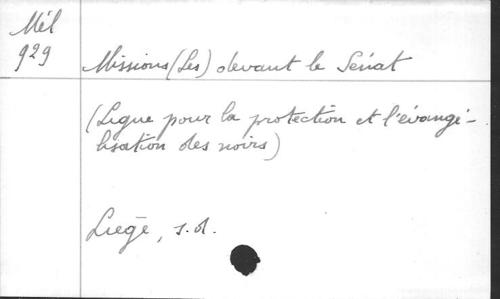 Mél
929
Missions (Les) devant le Sénat
(Ligue pour la protection et l'évangé-
lisation des noirs)
Liège, s.d.